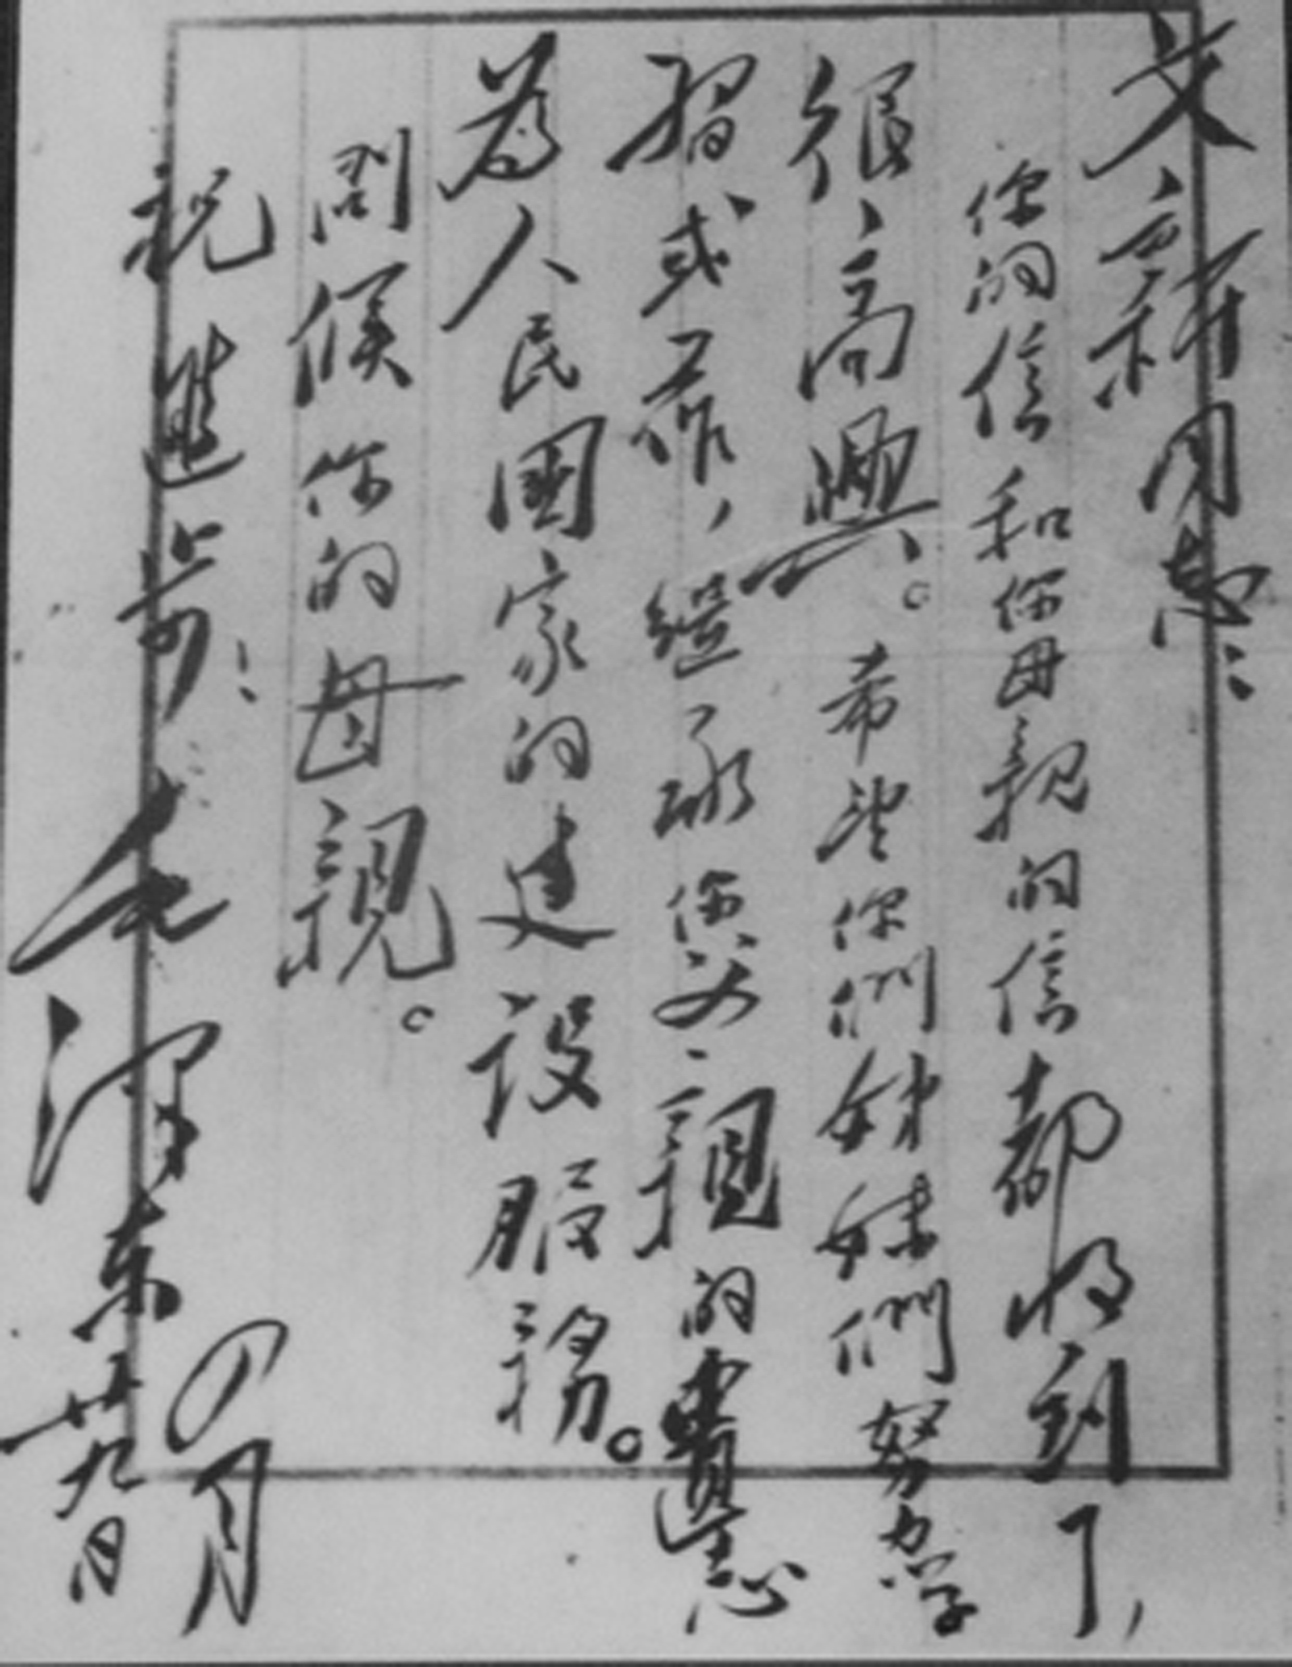 文新同志：
你的信和你母親的信都收到了，
很高興。希望你們姊妹們努力学
習或工作，繼承你父親的遺志
為人民國家的建設服務。
問候你的母親。
祝進步！
毛澤东
四月
廿九日